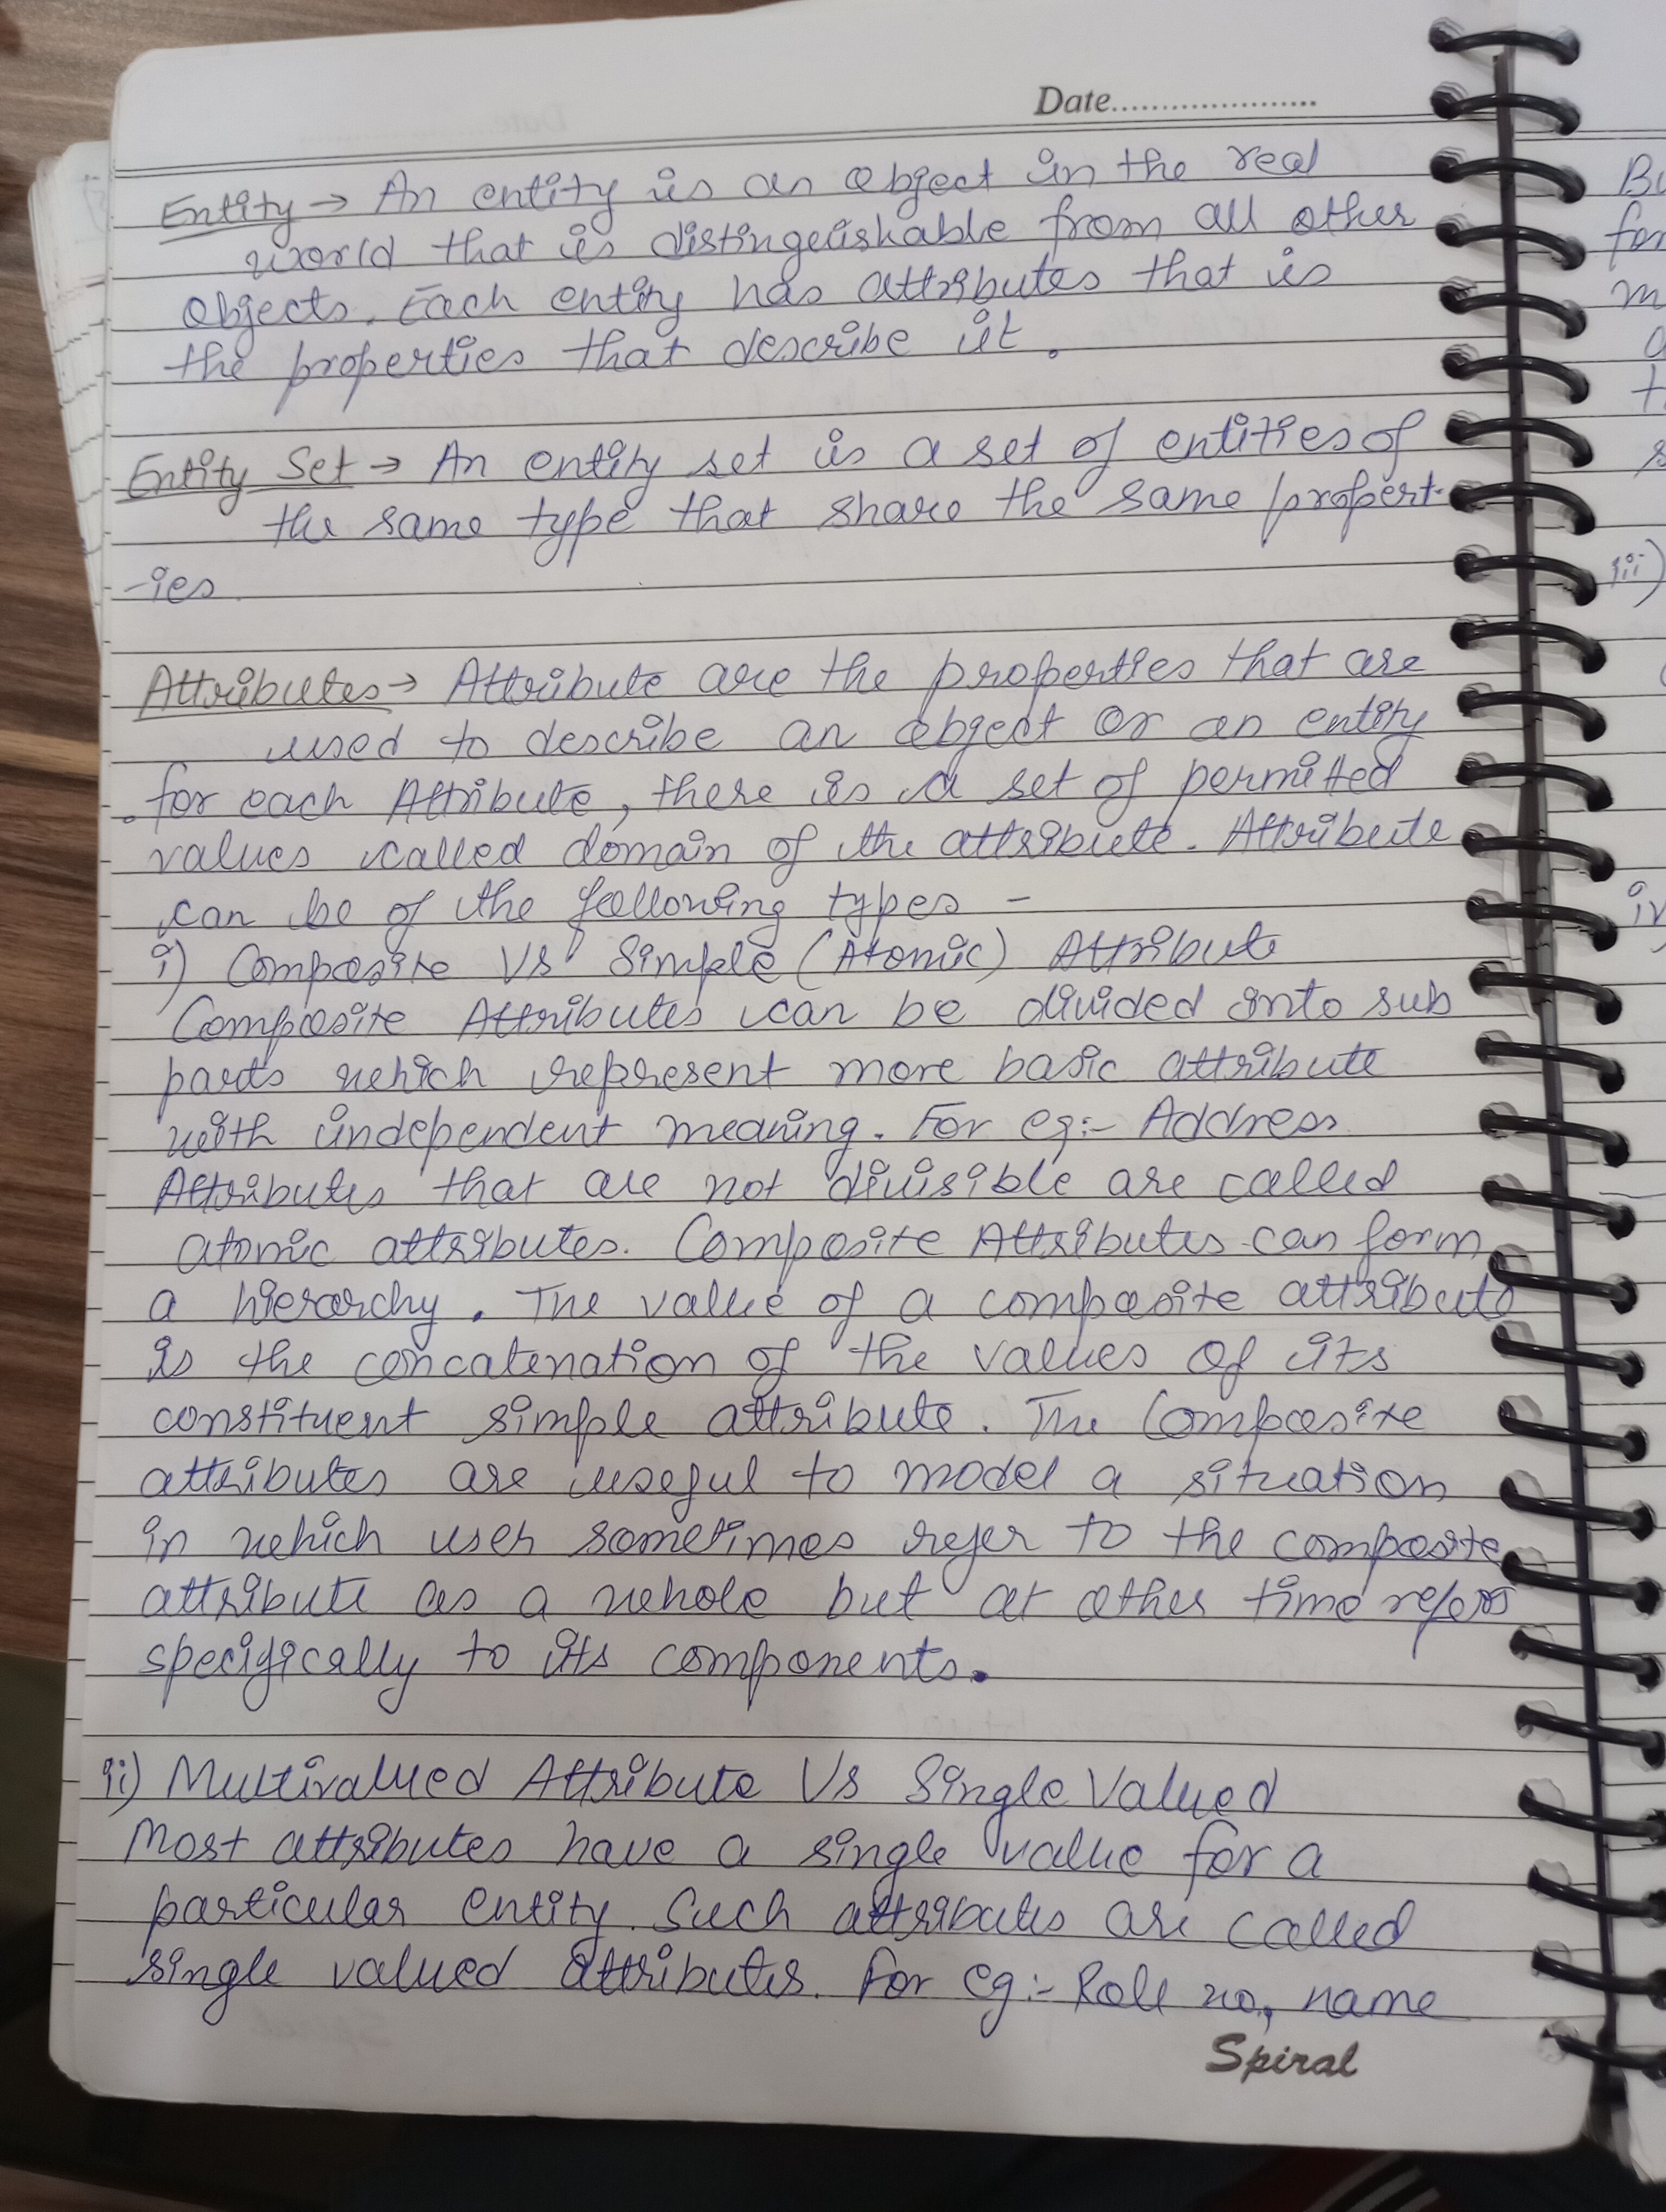 Date......................
Entity → An entity is an object in the real
world that is distinguishable from all other
objects. Each entity has attributes that is
the properties that describe it.
Entity Set → An entity set is a set of entities of
the same type that share the same propert-
-ies.
Attributes → Attribute are the properties that are
used to describe an object or an entity
. for each Attribute, there is a set of permitted
values called domain of the attribute. Attribute
can be of the following types -
i) Composite Vs Simple (Atomic) Attribute
Composite Attributes can be divided into sub
parts which represent more basic attribute
with independent meaning. For eg:- Address
Attributes that are not divisible are called
atomic attributes. Composite Attributes can form
a hierarchy. The value of a composite attribute
is the concatenation of the values of its
constituent simple attribute. The Composite
attributes are useful to model a situation
in which user sometimes refer to the composite
attribute as a whole but at other time refers
specifically to its components.
ii) Multivalued Attribute Vs Single Valued
Most attributes have a single value for a
particular entity. Such attributes are called
single valued attributes. For eg:- Roll no, name
Spiral
iii)